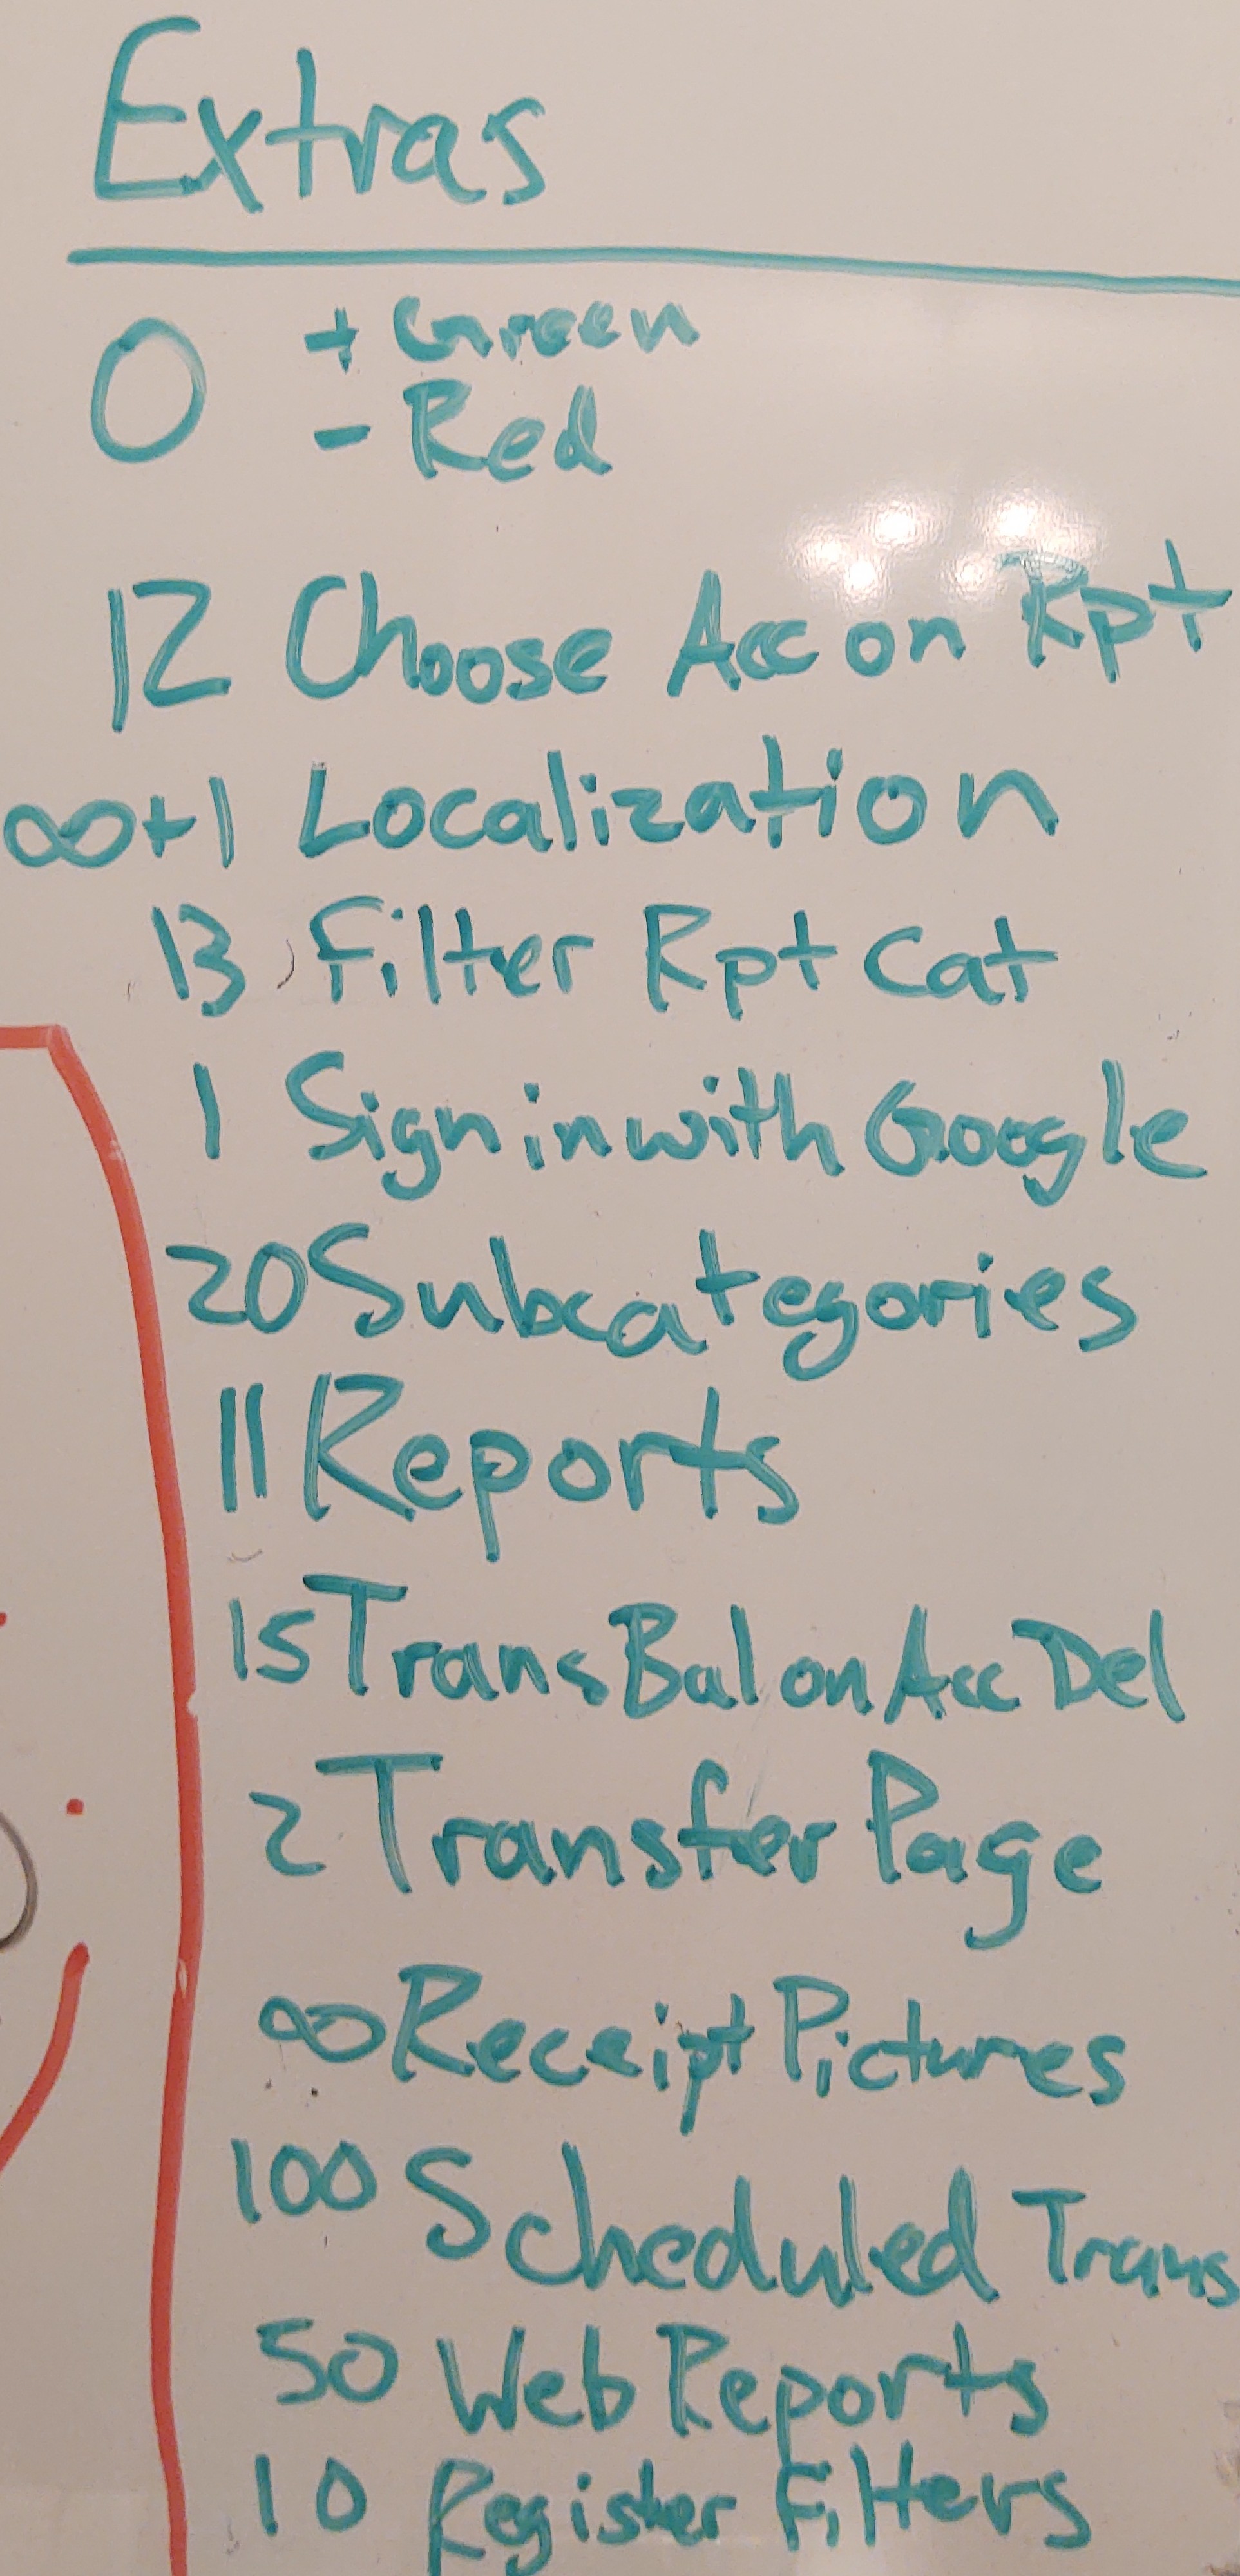 Extras
0 + Green
- Red
12 Choose Acc on Rpt
∞+1 Localization
13 Filter Rpt Cat
1 Sign in with Google
20 Subcategories
11 Reports
15 Trans Bal on Acc Del
2 Transfer Page
∞ Receipt Pictures
100 Scheduled Trans
50 Web Reports
10 Register Filters